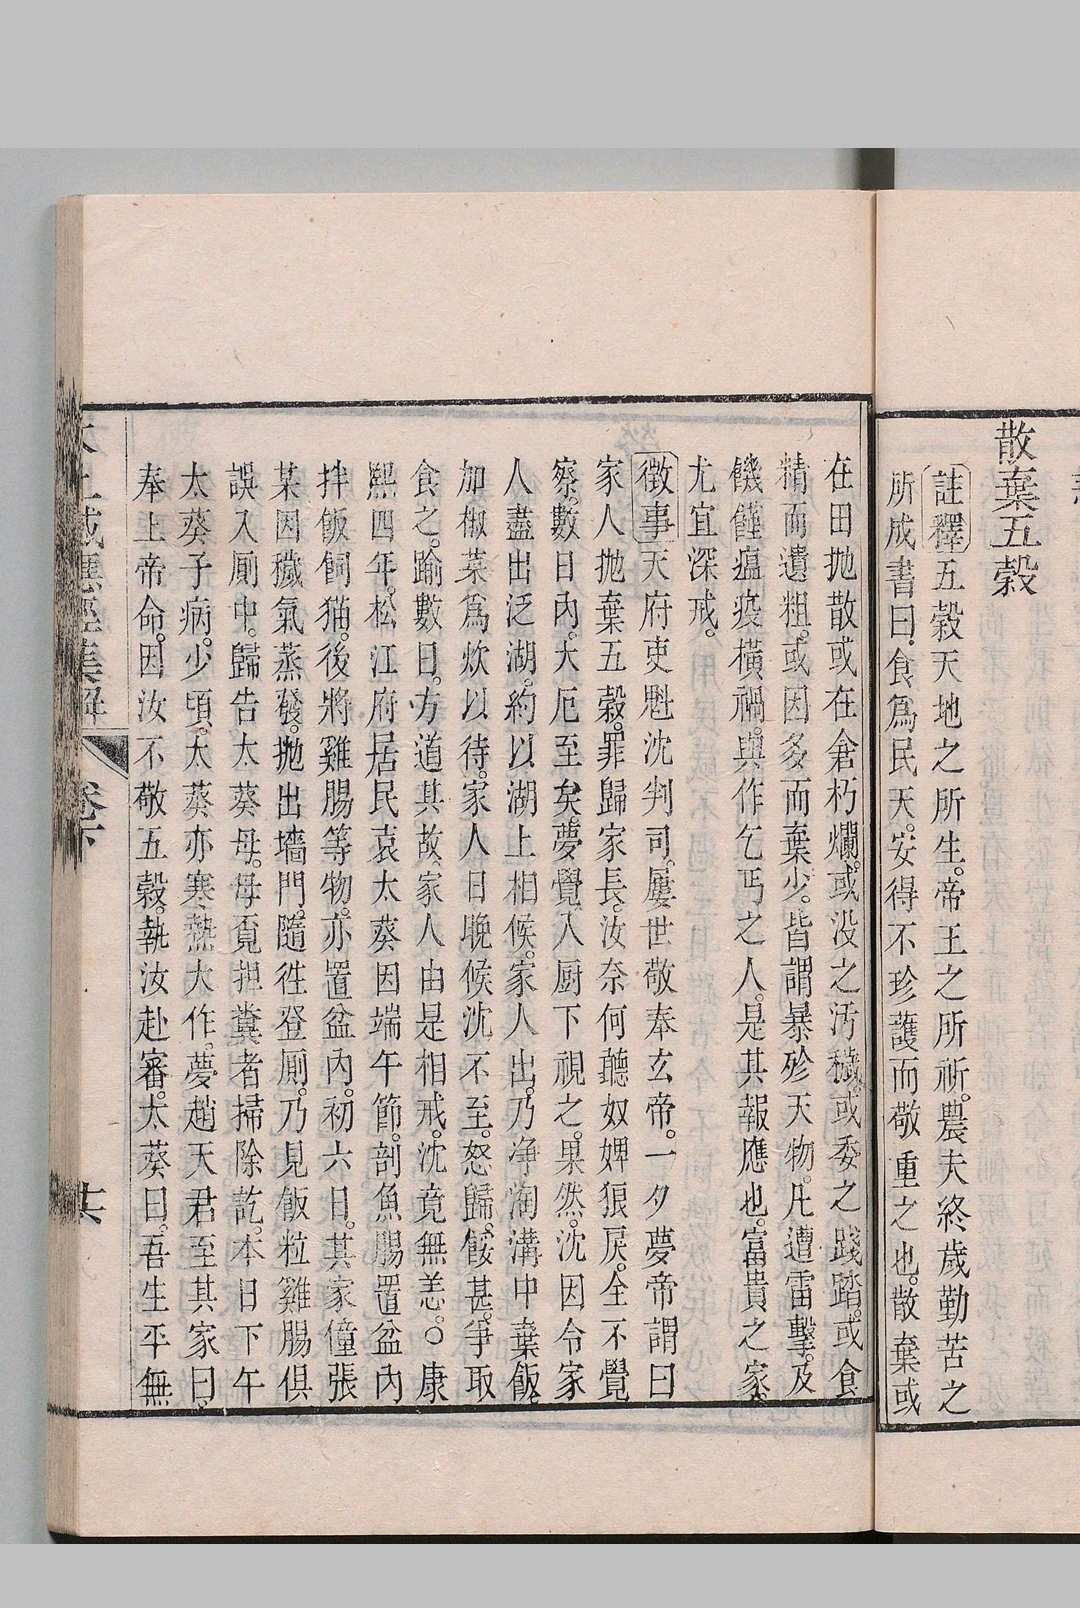 散棄五穀
註釋五穀天地之所生。帝王之所祈。農夫終歲勤苦之
所成書曰。食爲民天。安得不珍護而敬重之也。散棄或
在田拋散或在倉朽爛。或没之汚穢或委之踐踏。或食
精而遺粗。或因多而棄少。皆謂暴殄天物。凡遭雷擊。及
饑饉瘟疫橫禍。與作乞丐之人。是其報應也。富貴之家
尤宜深戒。
徵事天府吏魁沈判司。屢世敬奉玄帝。一夕夢帝謂曰
家人拋棄五穀。罪歸家長。汝奈何聽奴婢狼戾。全不覺
察。數日內。大厄至矣夢覺入厨下視之。果然。沈因令家
人盡出泛湖。約以湖上相候。家人出。乃净淘溝中棄飯。
加椒菜爲炊以待。家人日晚候沈不至。怒歸。餒甚。爭取
食之。踰數日。方道其故。家人由是相戒。沈竟無恙。○康
熙四年。松江府居民袁太葵因端午節。剖魚腸置盆內
拌飯飼猫。後將雞腸等物。亦置盆內。初六日。其家僮張
某因穢氣蒸發。拋出墻門。隨徃登厠。乃見飯粒雞腸俱
誤入厠中。歸告太葵母。母覓担糞者掃除訖。本日下午
太葵子病。少頃。太葵亦寒熱大作。夢趙天君至其家曰。
奉上帝命。因汝不敬五穀。執汝赴審。太葵曰。吾生平無
太上感應經集解
卷下